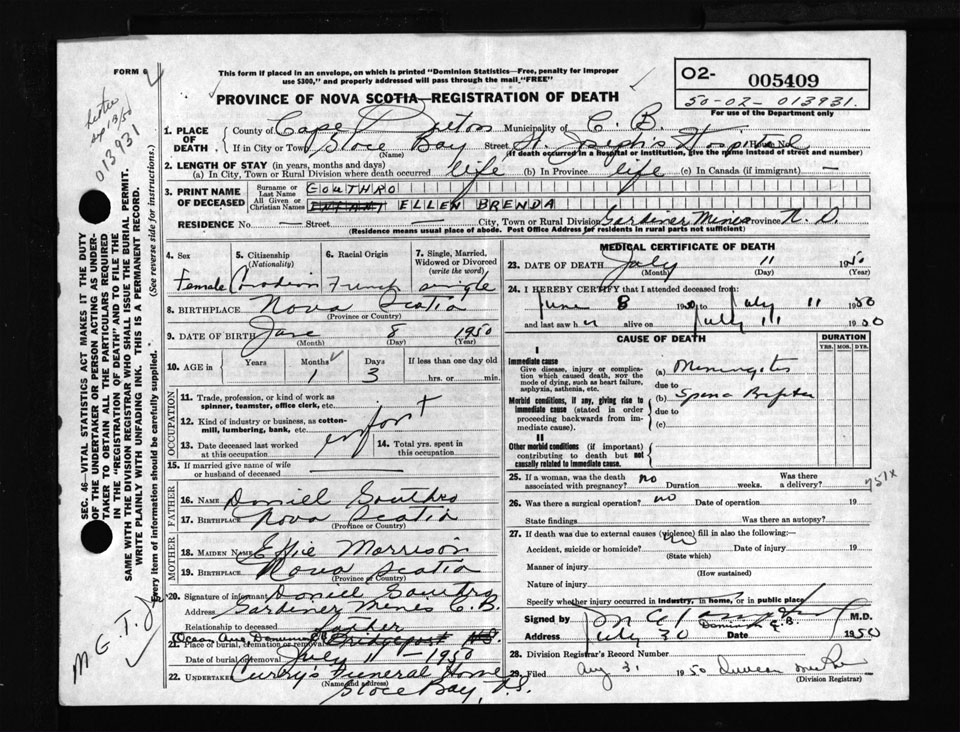 FORM 6
This form if placed in an envelope, on which is printed "Dominion Statistics—Free, penalty for improper
use $300," and properly addressed will pass through the mail "FREE"
PROVINCE OF NOVA SCOTIA—REGISTRATION OF DEATH
O2- 005409
50-02-013931.
For use of the Department only
Sep 13/50
013931
SEC. 46—VITAL STATISTICS ACT MAKES IT THE DUTY
OF THE UNDERTAKER OR PERSON ACTING AS UNDER-
TAKER TO OBTAIN ALL THE PARTICULARS REQUIRED
IN THE "REGISTRATION OF DEATH" AND TO FILE THE
SAME WITH THE DIVISION REGISTRAR WHO SHALL ISSUE THE BURIAL PERMIT.
WRITE PLAINLY WITH UNFADING INK. THIS IS A PERMANENT RECORD.
Every item of information should be carefully supplied. (See reverse side for instructions.)
1. PLACE OF DEATH County of Cape Breton Municipality of C. B.
If in City or Town Glace Bay Street St. Joseph's Hospital House No.
(Name) (If death occurred in a hospital or institution, give the name instead of street and number)
2. LENGTH OF STAY (in years, months and days)
(a) In City, Town or Rural Division where death occurred life (b) In Province life (c) In Canada (if immigrant) —
3. PRINT NAME OF DECEASED Surname or Last Name GOUTHRO
All Given or Christian Names INFANT ELLEN BRENDA
RESIDENCE No. — Street — City, Town or Rural Division Gardiner Mines Province N. S.
(Residence means usual place of abode. Post Office Address for residents in rural parts not sufficient)
4. Sex 5. Citizenship (Nationality) 6. Racial Origin 7. Single, Married, Widowed or Divorced (write the word)
Female Canadian French single
8. BIRTHPLACE Nova Scotia
(Province or Country)
9. DATE OF BIRTH June 8 1950
(Month) (Day) (Year)
10. AGE in Years Months Days If less than one day old
1 3 hrs. or min.
OCCUPATION
11. Trade, profession, or kind of work as
spinner, teamster, office clerk, etc.
12. Kind of industry or business, as cotton-
mill, lumbering, bank, etc. infant
13. Date deceased last worked at this occupation
14. Total yrs. spent in this occupation
15. If married give name of wife or husband of deceased —
FATHER
16. NAME Daniel Gouthro
17. BIRTHPLACE Nova Scotia
(Province or Country)
MOTHER
18. MAIDEN NAME Effie Morrison
19. BIRTHPLACE Nova Scotia
(Province or Country)
20. Signature of informant Daniel Gouthro
Address Gardiner Mines C. B.
Relationship to deceased father
21. Place of burial, cremation or removal Bridgeport N.S.
Date of burial or removal July 11 - 1950
22. UNDERTAKER Curry's Funeral Home
(Name and Address) Glace Bay, N.S.
MEDICAL CERTIFICATE OF DEATH
23. DATE OF DEATH July 11 1950
(Month) (Day) (Year)
24. I HEREBY CERTIFY that I attended deceased from:
June 8 1950 to July 11 1950
and last saw her alive on July 11 1950
CAUSE OF DEATH DURATION
YRS. MOS. DYS.
I
Immediate cause
Give disease, injury or complica-
tion which caused death, NOT the
mode of dying, such as heart failure,
asphyxia, asthenia, etc.
(a) Meningitis
due to
Morbid conditions, if any, giving rise to
immediate cause (stated in order
proceeding backwards from im-
mediate cause).
(b) Spina Bifida
due to
(c)
II
Other morbid conditions (if important)
contributing to death but not
causally related to immediate cause.
25. If a woman, was the death associated with pregnancy? no Duration weeks. Was there a delivery?
751x
26. Was there a surgical operation? no Date of operation 19
State findings Was there an autopsy?
27. If death was due to external causes (violence) fill in also the following:—
Accident, suicide or homicide? no Date of injury 19
(State which)
Manner of injury
(How sustained)
Nature of injury
Specify whether injury occurred in industry, in home, or in public place
Signed by M.D.
Address Dominion C.B.
July 30 Date 1950
28. Division Registrar's Record Number
29. Filed Aug 31 1950 Duncan
(Division Registrar)